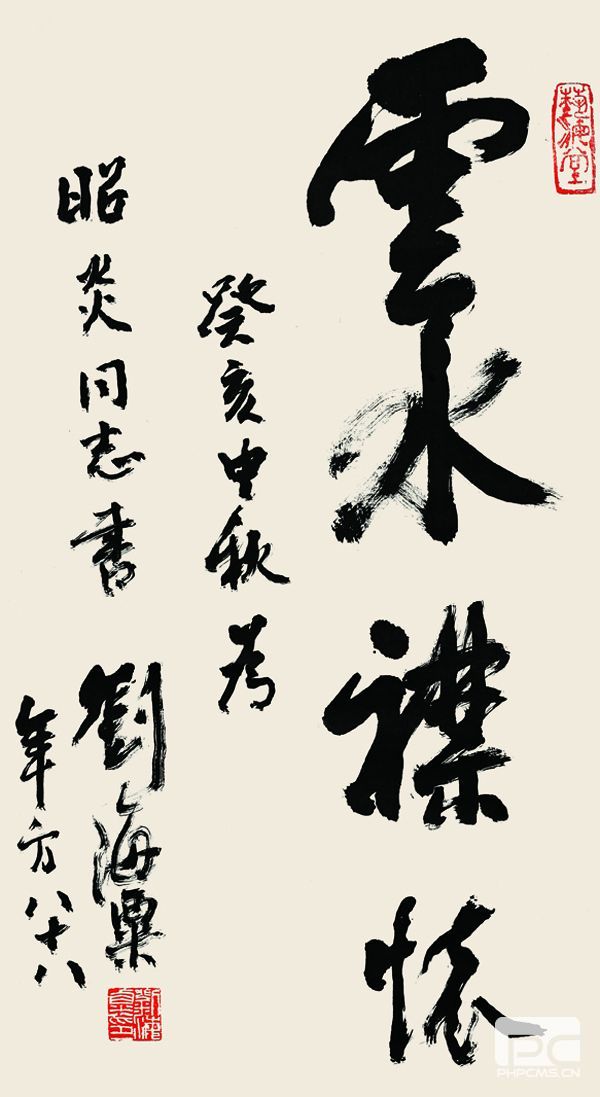 雲水襟懷
藝海堂
癸亥中秋為
昭炎同志書
劉海粟
年方八十八
PC
PHPCMS.CN